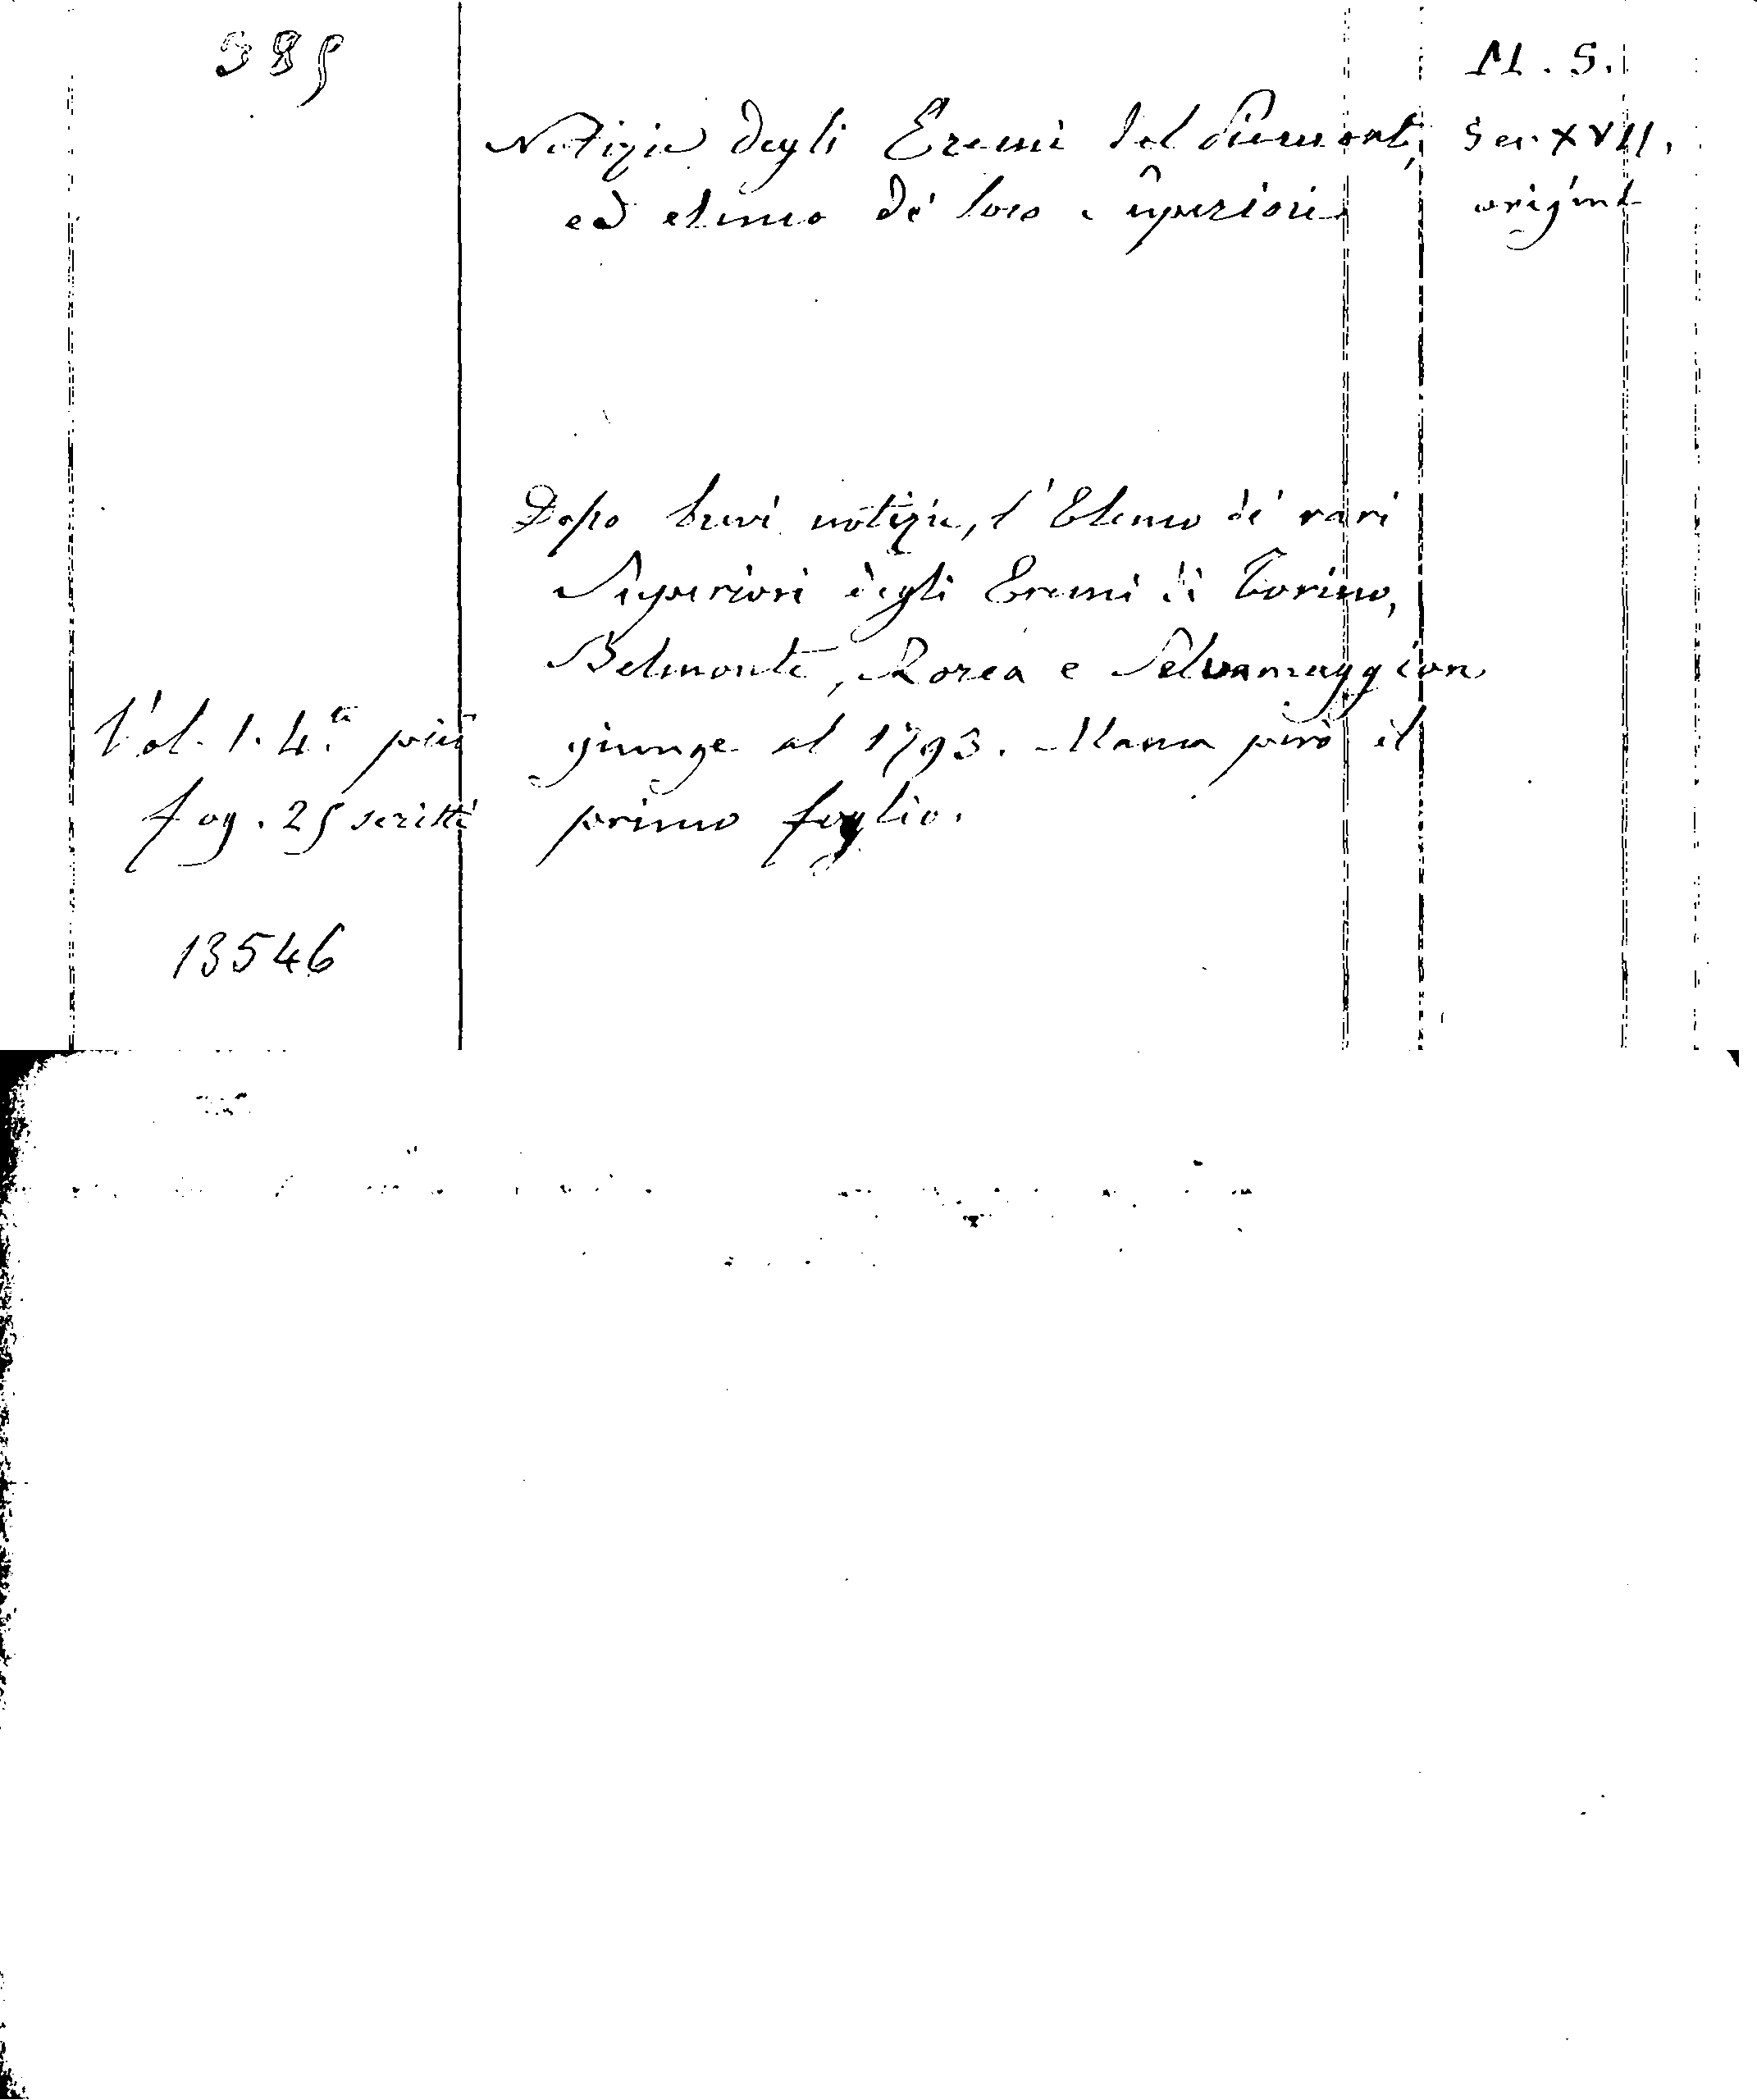 385
M. S.
Notizie degli Eremi del Piemonte,
Sec. XVII.
ed elenco de' loro Superiori
origin.
Dopo brevi notizie, l'Elenco di vari
Superiori degli Eremi di Torino,
Belmonte, e Selvamaggiore
Vol. 1. 4.to più
giunge al 1793. Manca però il
fog. 25 scritti
primo foglio.
13546